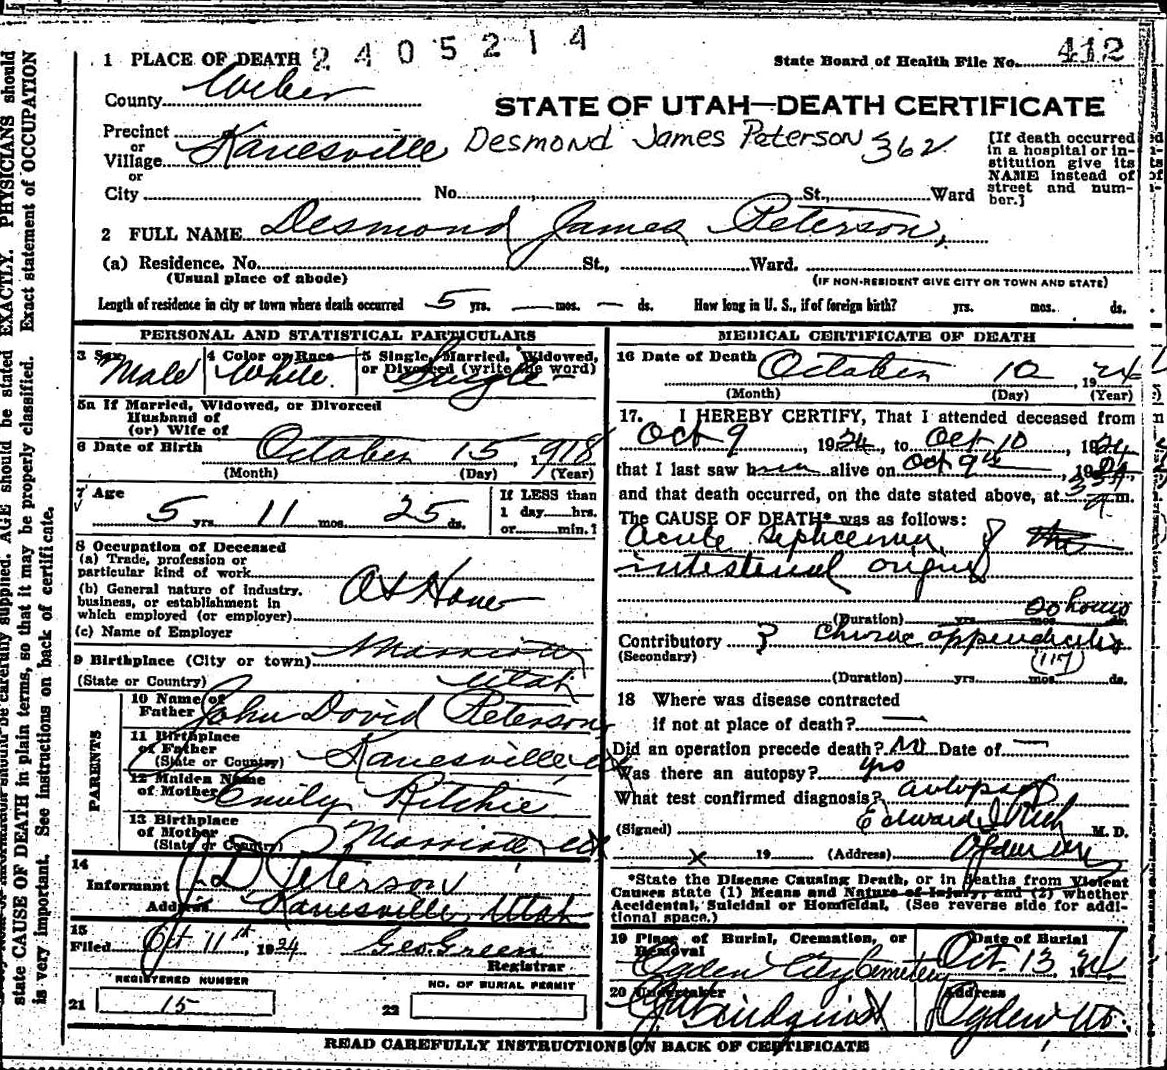 2405214
1 PLACE OF DEATH
State Board of Health File No. 412
County Weber
STATE OF UTAH—DEATH CERTIFICATE
Precinct
or
Village Kanesville
Desmond James Peterson 362
[If death occurred in a hospital or institution give its NAME instead of street and number.]
or
City No. St., Ward
2 FULL NAME Desmond James Peterson,
(a) Residence. No. St., Ward.
(Usual place of abode) (IF NON-RESIDENT GIVE CITY OR TOWN AND STATE)
Length of residence in city or town where death occurred 5 yrs. — mos. — ds. How long in U. S., if of foreign birth? yrs. mos. ds.
PERSONAL AND STATISTICAL PARTICULARS
3 Sex Male
4 Color or Race White.
5 Single, Married, Widowed, or Divorced (write the word) Single
5a If Married, Widowed, or Divorced
Husband of
(or) Wife of
6 Date of Birth October 15, 1918
(Month) (Day) (Year)
7 Age 5 yrs. 11 mos. 25 ds.
If LESS than
1 day hrs.
or min.?
8 Occupation of Deceased
(a) Trade, profession or
particular kind of work
(b) General nature of industry,
business, or establishment in
which employed (or employer) At Home
(c) Name of Employer
9 Birthplace (City or town) Marriott
(State or Country) Utah
PARENTS
10 Name of Father John David Peterson,
11 Birthplace of Father
(State or Country) Kanesville, Ut
12 Maiden Name of Mother Emily Ritchie.
13 Birthplace of Mother
(State or Country) Marriott, Ut
14
Informant J. D. Peterson
Address Kanesville, Utah
15
Filed Oct 11st, 1924 Geo. Green
Registrar
REGISTERED NUMBER
21 15
NO. OF BURIAL PERMIT
22
MEDICAL CERTIFICATE OF DEATH
16 Date of Death October 10, 1924
(Month) (Day) (Year)
17. I HEREBY CERTIFY, That I attended deceased from
Oct 9, 1924, to Oct 10, 1924
that I last saw him alive on Oct 9th, 1924
and that death occurred, on the date stated above, at A m.
The CAUSE OF DEATH* was as follows:
Acute septicemia of the
intestinal origin
(Duration) yrs. mos. ds. hours
Contributory ? Chronic appendicitis
(Secondary) (117)
(Duration) yrs. mos. ds.
18 Where was disease contracted
if not at place of death? —
Did an operation precede death? No Date of —
Was there an autopsy? yes
What test confirmed diagnosis? autopsy
(Signed) Edward I Rich M. D.
19 (Address) Ogden Ut
*State the Disease Causing Death, or in deaths from Violent
Causes state (1) Means and Nature of Injury, and (2) whether
Accidental, Suicidal or Homicidal. (See reverse side for additional space.)
19 Place of Burial, Cremation, or Removal
Ogden City Cemetery
Date of Burial
Oct. 13, 1924
20 Undertaker
Lindquist
Address
Ogden Ut.
READ CAREFULLY INSTRUCTIONS ON BACK OF CERTIFICATE
should be carefully supplied. AGE should be stated EXACTLY. PHYSICIANS should
state CAUSE OF DEATH in plain terms, so that it may be properly classified. Exact statement of OCCUPATION
is very important. See instructions on back of certificate.